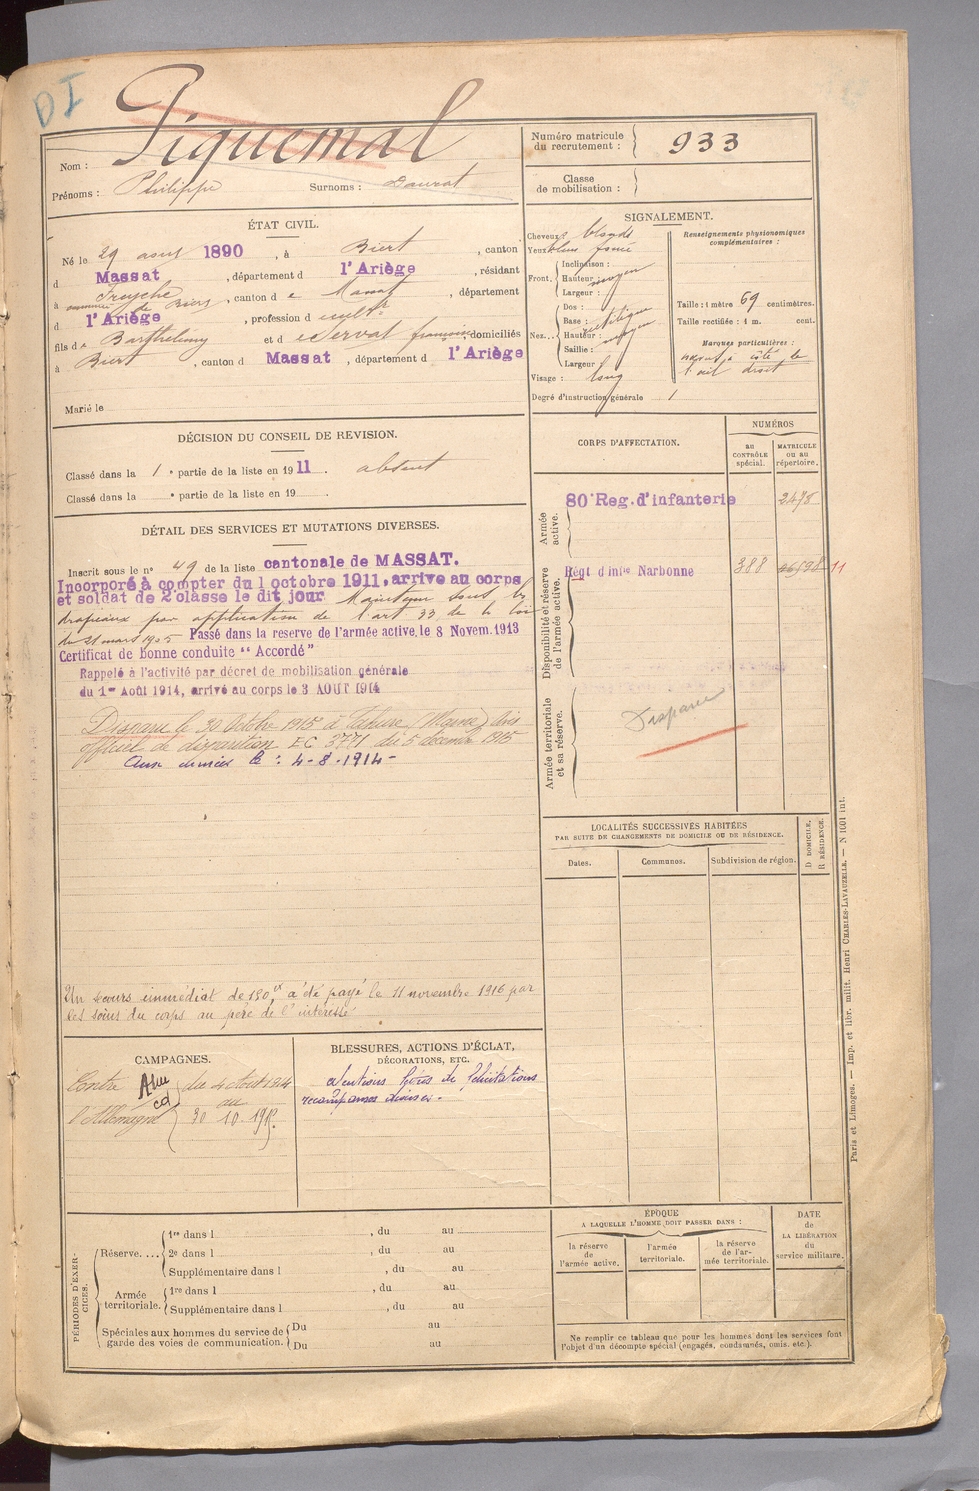 DI
Nom : Piquemal
Prénoms : Philippe Surnoms : Daurat
Numéro matricule
du recrutement : 933
Classe
de mobilisation :
ÉTAT CIVIL.
Né le 29 aout 1890 , à Biert , canton
d Massat , département d l'Ariège , résidant
à , canton d e Massat , département
de Biert
d l'Ariège , profession d cultr
fils de Barthélemy et d e Servat françoise, domiciliés
à Biert , canton d Massat , département d l'Ariège
Marié le
SIGNALEMENT.
Cheveux : blonds
Yeux bleus foncé
Front. Inclinaison :
Hauteur : moyen
Largeur :
Nez... Dos :
Base :
Hauteur : moyen
Saillie :
Largeur :
Visage : long
Degré d'instruction générale 1
Renseignements physionomiques
complémentaires :
Taille : 1 mètre 69 centimètres.
Taille rectifiée : 1 m. cent.
Marques particulières :
à côté de
l'œil droit
DÉCISION DU CONSEIL DE REVISION.
Classé dans la 1 e partie de la liste en 1911. absent
Classé dans la e partie de la liste en 19 .
DÉTAIL DES SERVICES ET MUTATIONS DIVERSES.
Inscrit sous le no 49 de la liste cantonale de MASSAT.
Incorporé à compter du 1 octobre 1911, arrive au corps
et soldat de 2e classe le dit jour Maintenu sous les
drapeaux par application de l'art 33 de la loi
du 21 mars 1905 Passé dans la reserve de l'armée active, le 8 Novem. 1913
Certificat de bonne conduite "Accordé"
Rappelé à l'activité par décret de mobilisation générale
du 1er Août 1914, arrivé au corps le 3 AOUT 1914
Disparu le 30 Octobre 1915 à Tahure (Marne) Avis
officiel de disparition EC 3771 du 5 décembre 1915
Aux armées le : 4-8-1914-
Un secours immédiat de 150 fr a été payé le 11 novembre 1916 par
les soins du corps au père de l'intéressé
CORPS D'AFFECTATION.
NUMÉROS
au
CONTRÔLE
spécial.
MATRICULE
ou au
répertoire.
Armée
active.
80e Reg. d'infanterie 2478
Disponibilité et réserve
de l'armée active.
Régt d'infie Narbonne 388 11
Armée territoriale
et sa réserve.
Disparu
LOCALITÉS SUCCESSIVES HABITÉES
PAR SUITE DE CHANGEMENTS DE DOMICILE OU DE RÉSIDENCE.
Dates. Communes. Subdivision de région.
D DOMICILE.
R RÉSIDENCE.
CAMPAGNES.
Contre du 4 aout 1914
l'Allemagne au
30 10 1915.
BLESSURES, ACTIONS D'ÉCLAT,
DÉCORATIONS, ETC.
de félicitations
PÉRIODES D'EXERCICES.
Réserve.... 1re dans l , du au
2e dans l , du au
Supplémentaire dans l , du au
Armée
territoriale. 1re dans l , du au
Supplémentaire dans l , du au
Spéciales aux hommes du service de
garde des voies de communication. Du au
Du au
ÉPOQUE
A LAQUELLE L'HOMME DOIT PASSER DANS :
la réserve
de
l'armée active.
l'armée
territoriale.
la réserve
de l'ar-
mée territoriale.
DATE
de
LA LIBÉRATION
du
service militaire.
Ne remplir ce tableau que pour les hommes dont les services font
l'objet d'un décompte spécial (engagés, condamnés, omis. etc.).
Paris et Limoges. — Imp. et libr. milit. Henri CHARLES-LAVAUZELLE. — N 1001 int.